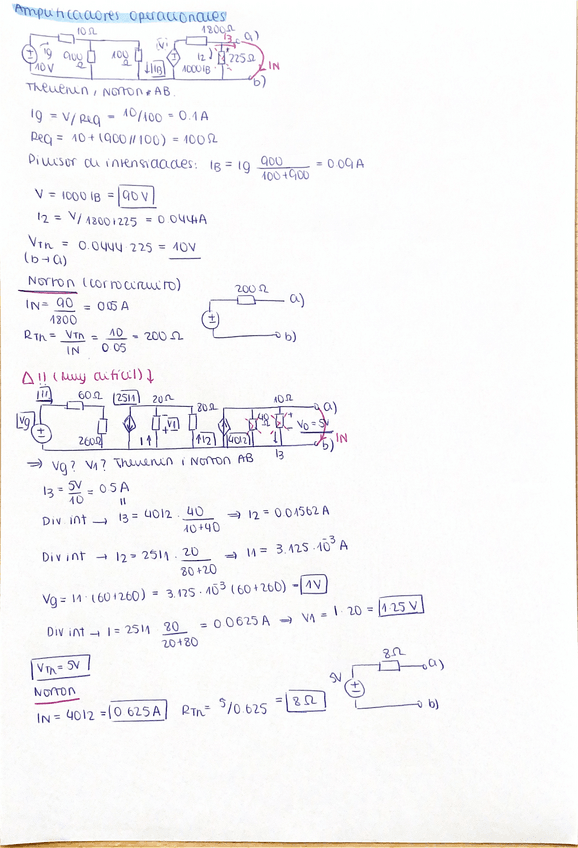 Amplificadores operacionales
10Ω 1800Ω I3 a)
Ig 900Ω 100Ω Vi I2 225Ω IN
10V IB 1000IB b)
Thevenin, Norton AB.
Ig = V/Req = 10/100 = 0.1A
Req = 10+(900//100) = 100Ω
Divisor de intensidades: IB = Ig 900/100+900 = 0.09A
V = 1000IB = 90V
I2 = V/1800+225 = 0.0444A
VTh = 0.0444·225 = 10V
(b→a)
Norton (cortocircuito)
IN = 90/1800 = 0.05A
RTh = VTh/IN = 10/0.05 = 200Ω
200Ω a)
b)
Δ!! (Muy difícil)↓
I1 60Ω 25I1 20Ω 10Ω a)
Vg 260Ω I V1 80Ω I2 40I2 40Ω V0=5V IN
I3 b)
⇒ Vg? V1? Thevenin i Norton AB
I3 = 5V/10 = 0.5A
Div.int → I3 = 40I2 · 40/10+40 ⇒ I2 = 0.01562A
Div int → I2 = 25I1 · 20/80+20 ⇒ I1 = 3.125·10⁻³A
Vg = I1·(60+260) = 3.125·10⁻³(60+260) = 1V
Div int → I = 25I1 80/20+80 = 0.0625A ⇒ V1 = I·20 = 1.25V
VTh = 5V
Norton
IN = 40I2 = 0.625A RTh = 5/0.625 = 8Ω
8Ω a)
5V
b)